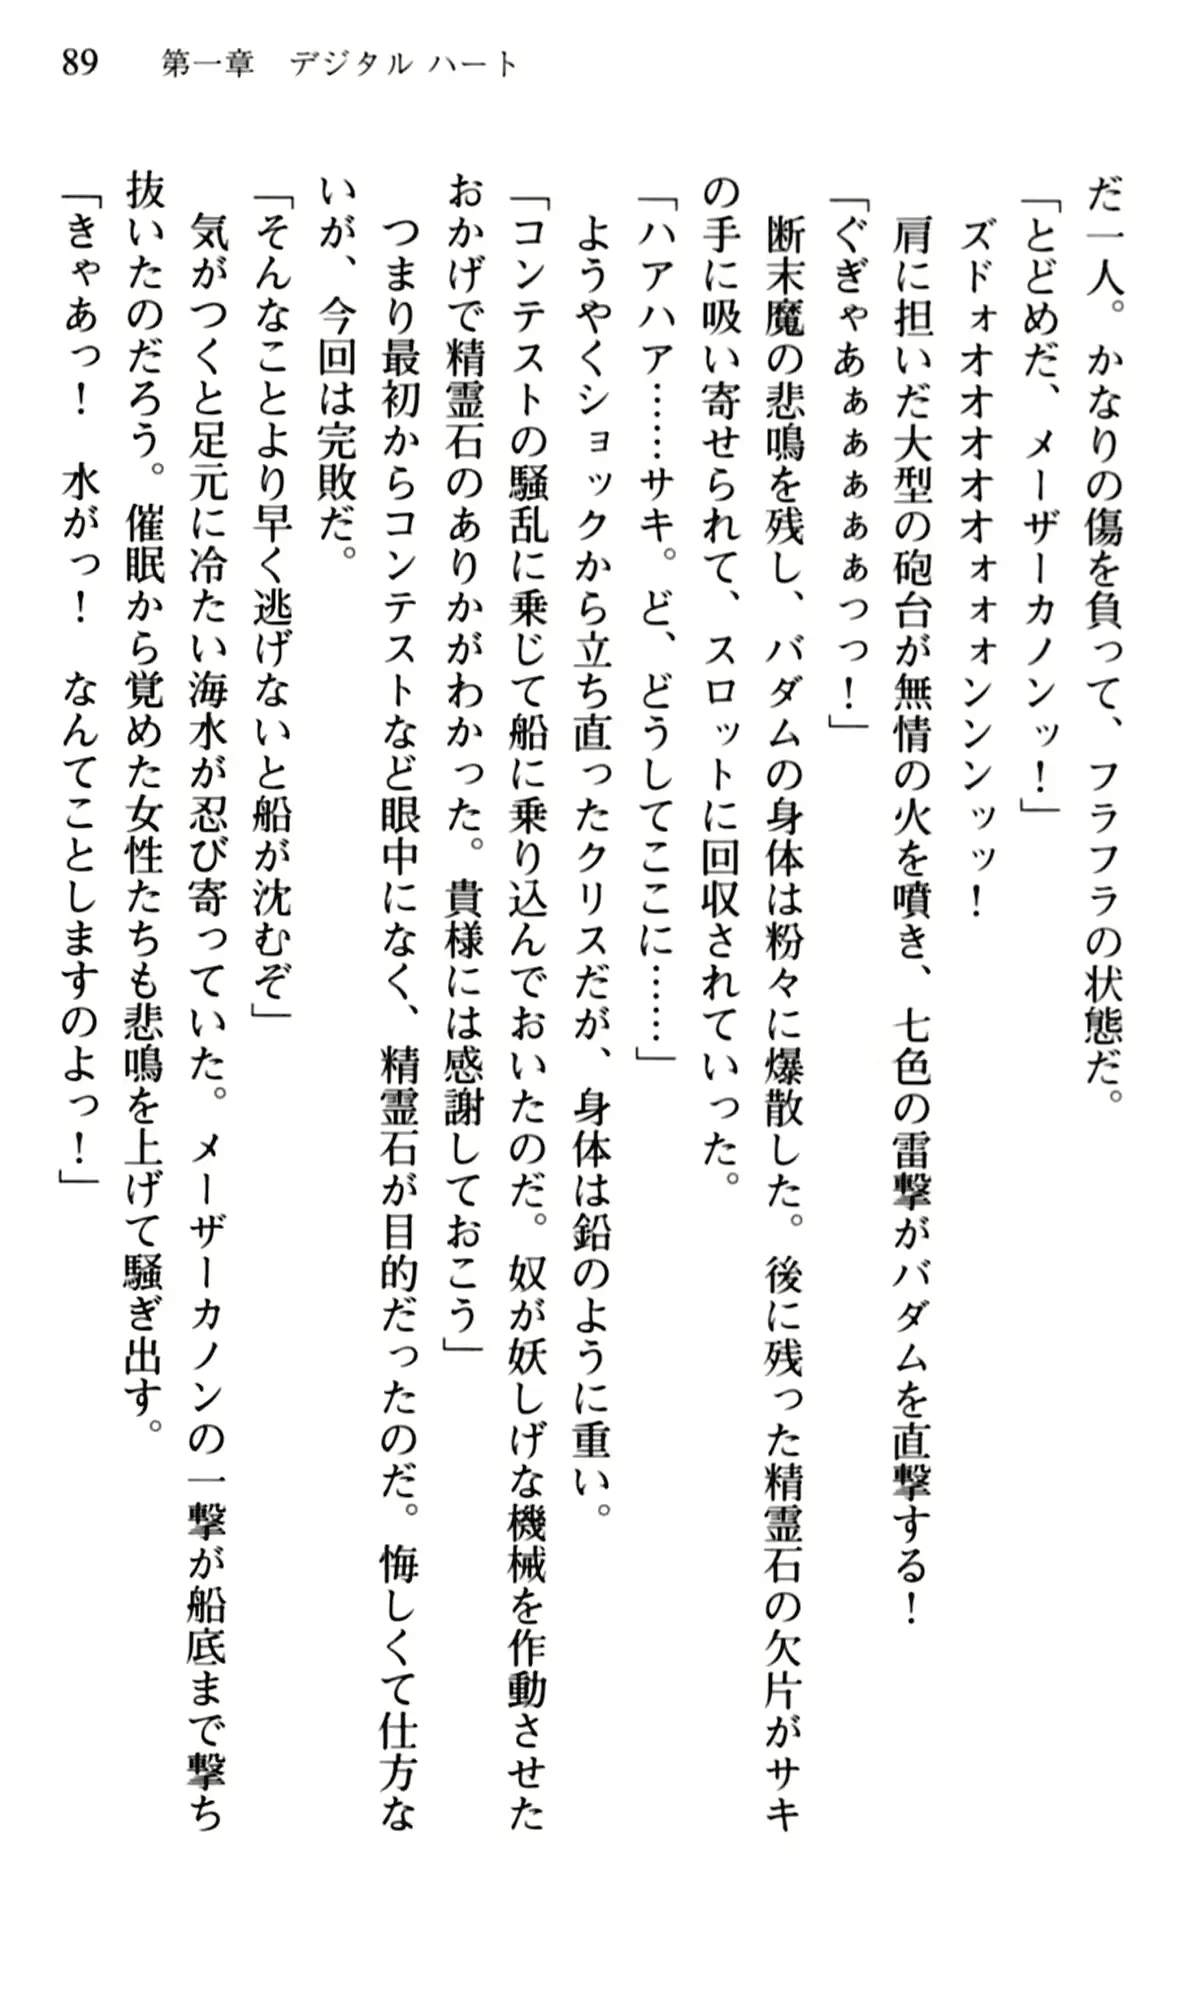 89 第一章 デジタル ハート
だ一人。かなりの傷を負って、フラフラの状態だ。
「とどめだ、メーザーカノンッ！」
ズドォオオオオオォォォンンンッッ！
肩に担いだ大型の砲台が無情の火を噴き、七色の雷撃がバダムを直撃する！
「ぐぎゃあぁぁぁぁぁっっ！」
断末魔の悲鳴を残し、バダムの身体は粉々に爆散した。後に残った精霊石の欠片がサキ
の手に吸い寄せられて、スロットに回収されていった。
「ハアハア……サキ。ど、どうしてここに……」
ようやくショックから立ち直ったクリスだが、身体は鉛のように重い。
「コンテストの騒乱に乗じて船に乗り込んでおいたのだ。奴が妖しげな機械を作動させた
おかげで精霊石のありかがわかった。貴様には感謝しておこう」
つまり最初からコンテストなど眼中になく、精霊石が目的だったのだ。悔しくて仕方な
いが、今回は完敗だ。
「そんなことより早く逃げないと船が沈むぞ」
気がつくと足元に冷たい海水が忍び寄っていた。メーザーカノンの一撃が船底まで撃ち
抜いたのだろう。催眠から覚めた女性たちも悲鳴を上げて騒ぎ出す。
「きゃあっ！　水がっ！　なんてことしますのよっ！」